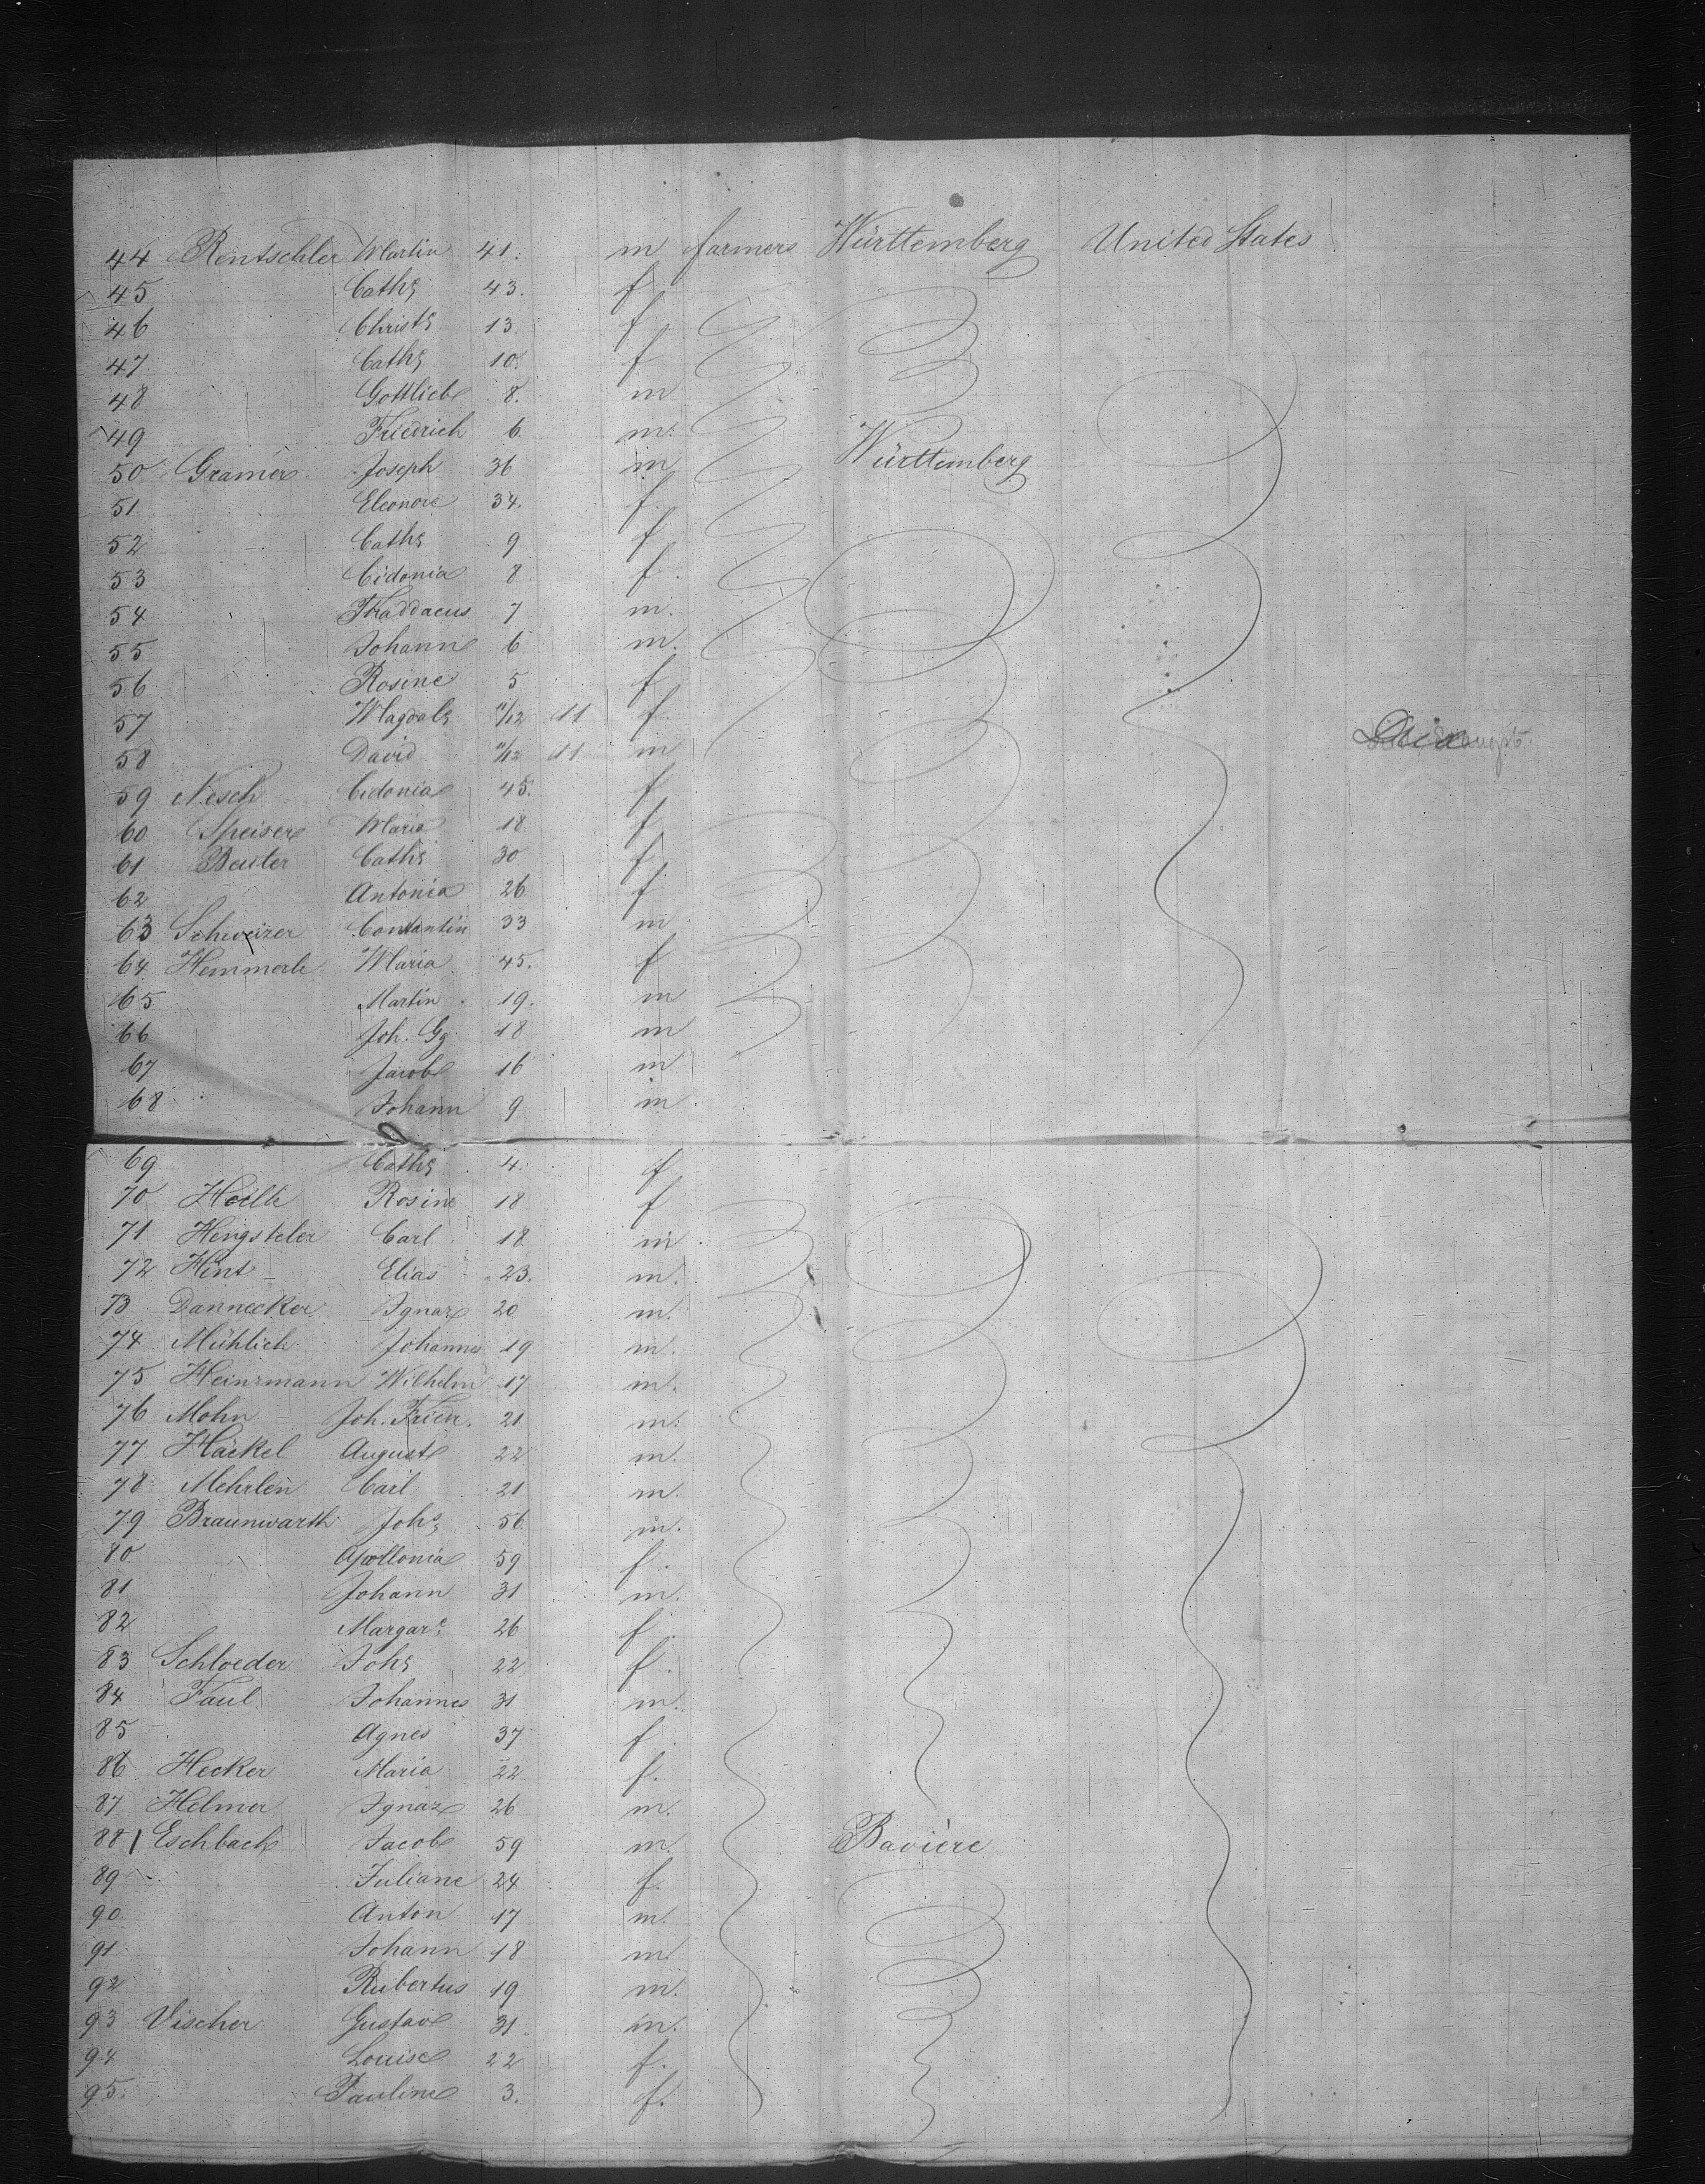 44 Rentschler Martin 41. m farmers Württemberg United States
45 Cathe 43. f
46 Christe 13. f
47 Cathe 10. f
48 Gottlieb 8. m
49 Friedrich 6. m.
50 Gramer Joseph 36 m Württemberg
51 Eleonore 34. f
52 Cathe 9 f
53 Cidonia 8 f.
54 Thaddaeus 7 m.
55 Johann 6 m.
56 Rosine 5 f
57 Magdale 11/12 11 f.
58 David 11/12 11 m
59 Nesch Cidonia 45. f
60 Speiser Maria 18 f
61 Beuter Cathe 30 f
62 Antonia 26 f
63 Schweizer Constantin 33 m
64 Hemmerle Maria 45. f
65 Martin 19. m
66 Joh. Gg 18 m
67 Jacob 16 m.
68 Johann 9 m.
69 Cathe 4. f
70 Rosine 18 f
71 Hengsteler Carl 18 m.
72 Elias 23. m.
73 Dannecker Ignaz 20 m.
74 Mühlich Johannes 19 m.
75 Heinzmann Wilhelm 17 m.
76 Mohn Joh. Friedr. 21 m.
77 Häckel August 22 m.
78 Mehrlen Carl 21 m.
79 Braunwarth Johs 56 m.
80 Apollonia 59 f.
81 Johann 31 m.
82 Margare 26 f.
83 Schloeder Johs 22 f.
84 Faul Johannes 31 m.
85 Agnes 37 f.
86 Hecker Maria 22 f.
87 Helmer Ignaz 26 m.
88 Eschbach Jacob 59 m. Bavière
89 Juliane 24 f.
90 Anton 17 m.
91 Johann 18 m.
92 Rubertus 19 m.
93 Vischer Gustav 31 m.
94 Louise 22 f.
95. Pauline 3. f.